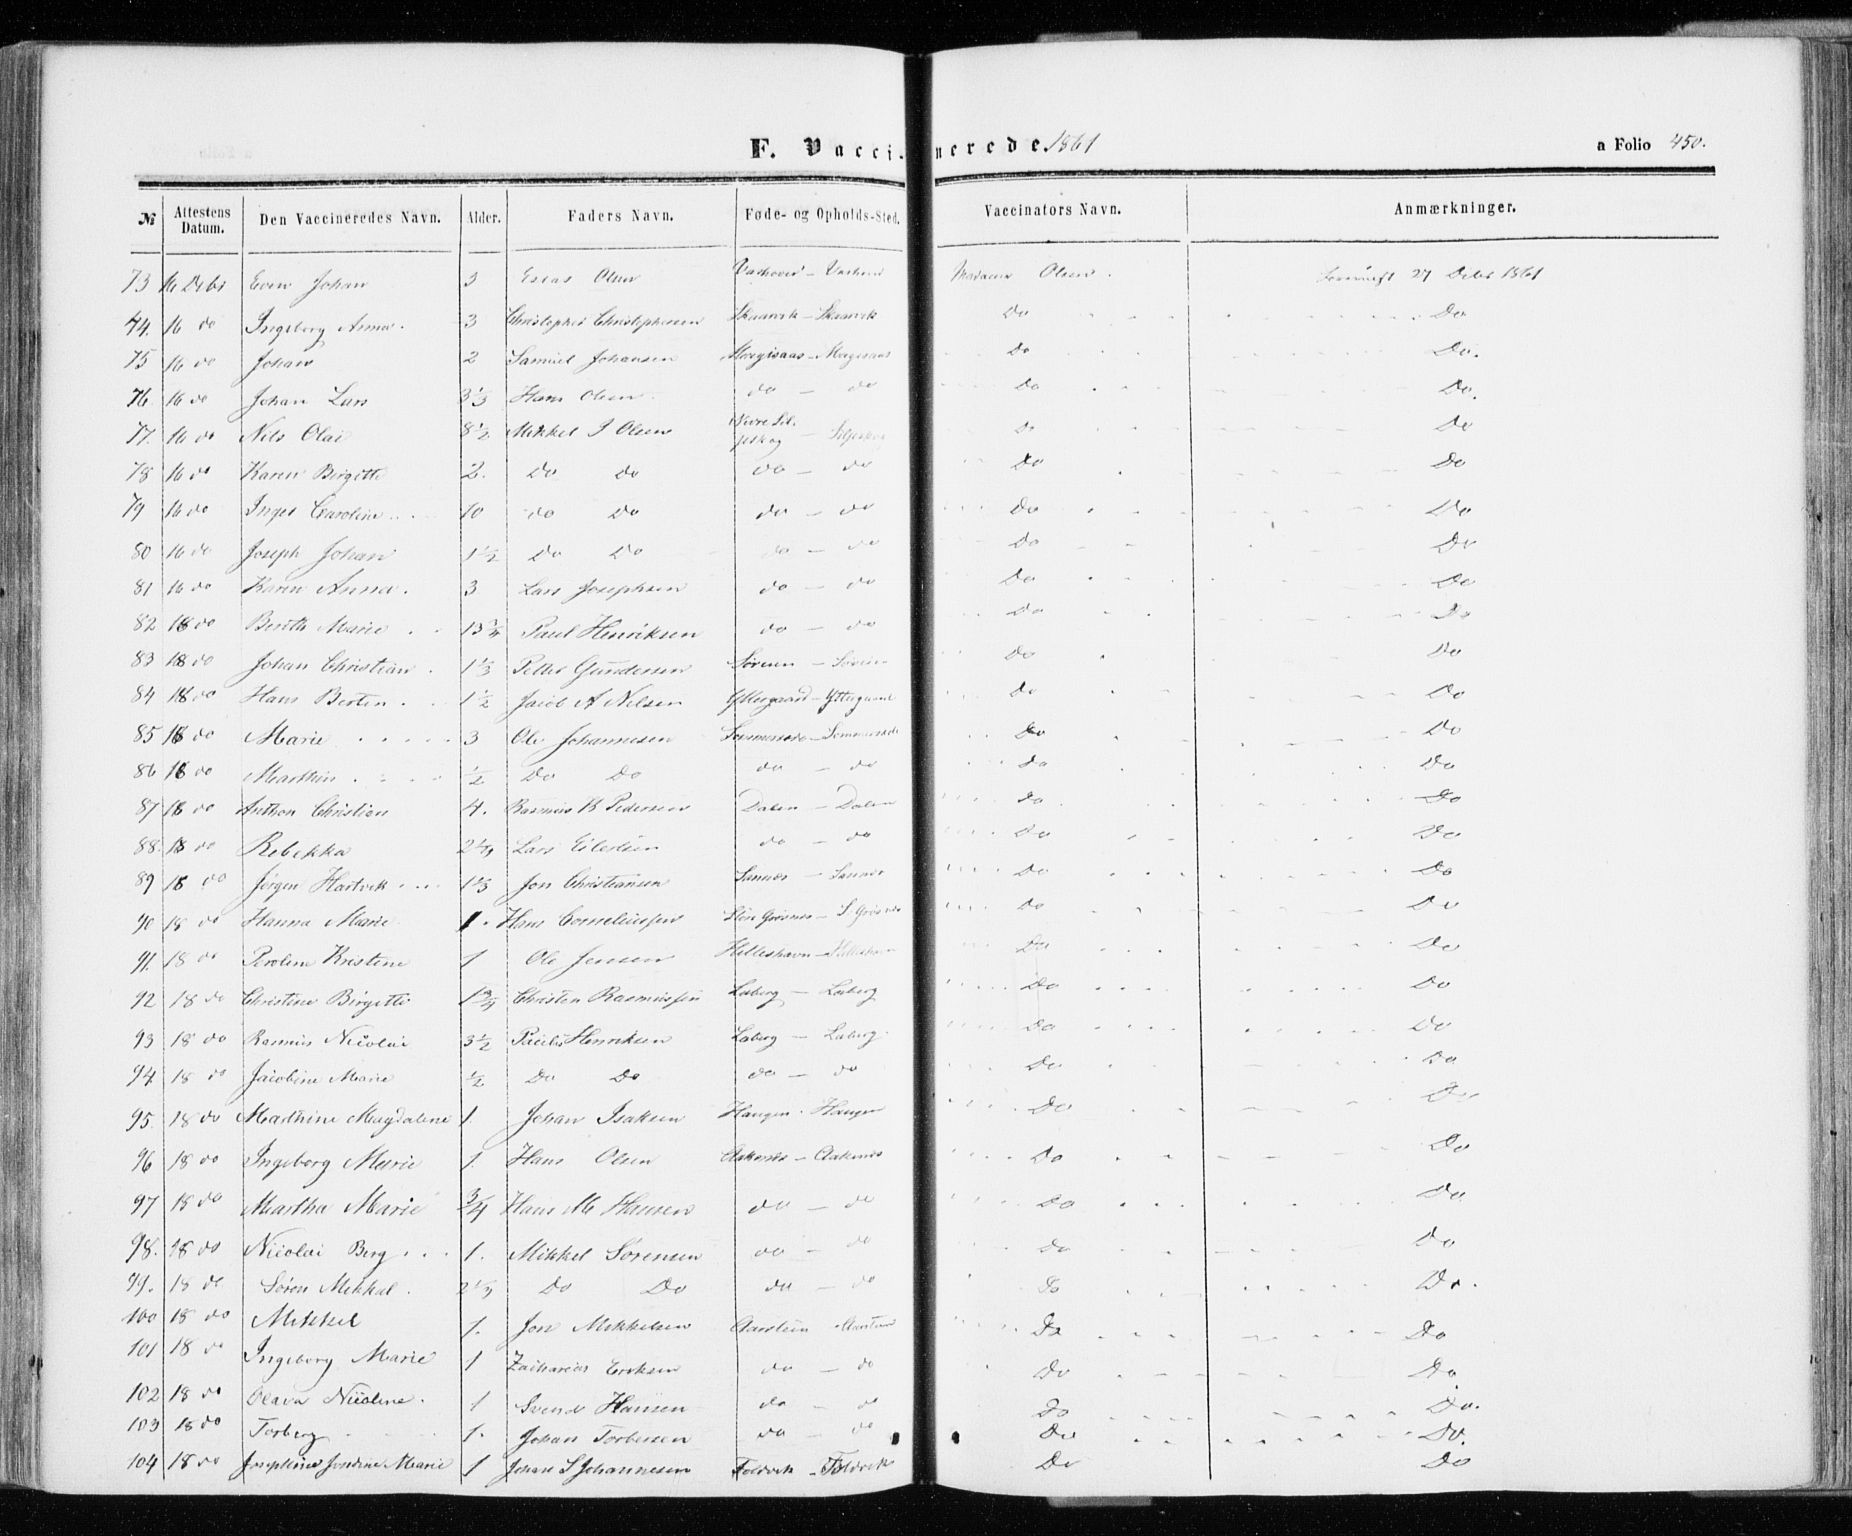 F. Vaccinerede. 1861
a Folio 450.
№ Attestens Datum. Den Vaccineredes Navn. Alder. Faders Navn. Føde- og Opholds-Sted. Vaccinators Navn. Anmærkninger.
73 16 Debr Even Johan 3 Esias Olsen Olsen 27 Debr 1861
74. 16 do Ingeborg Anna. 3 Christopher Christophersen Skaarvik - Skaarvik Do Do
75 16 do Johan 2 Samuel Johansen Do Do.
76 16 do Johan Lars 3 1/3 Hans Olsen do - do Do Do.
77. 16 do Nils Olai 8 1/2 Mikkel J Olsen Do Do
78 16 do Karen Birgitte 2. Do Do do - do Do Do
79 16 do Inger Caroline 10 do Do do - do Do Do
80 16 do Joseph Johan 1 1/2 Do Do do - do Do Do
81 16 do Karen Anna. 3 Lars Josephsen do - do Do Do
82 18 do Berith Marie 13 3/4 Paul Henriksen do - do Do Do
83 18 do Johan Christian. 1 1/3 Petter Gundersen Do Do
84 18 do Hans Bertin. 1 1/2 Jacob A Nilsen Yttergaard - Yttergaard Do Do
85 18 do Marie 3 Ole Johannesen Sommersæde - Sommersæde Do Do
86 18 do Marthin 1/2 Do Do do - do Do Do
87 18 do Anthon Christian 4. Rasmus K Pedersen Dalen - Dalen Do Do
88. 18 do Rebekka 2 1/4 Lars Eilertsen do - do Do Do
89 18 do Jørgen Hartvik 1 1/3 Jon Christiansen Sannes - Sannes Do Do
90 18 do Hanna Marie 1. Hans Corneliussen Store Grøsnes - S. Grøsnes Do Do
91. 18 do Peroline Kristine 1 Ole Jensen Helleshavn - Helleshavn Do Do
92 18 do Christine Birgitte 1 3/4 Christen Rasmussen Laberg - Laberg Do Do
93 18 do Rasmus Nicolai 3 1/2 Henriksen Laberg - Laberg. Do Do
94 18 do Jacobine Marie 1/2 Do Do do - do Do Do
95. 18 do Marthine Magdalene 1. Johan Isaksen Haugen - Haugen Do Do
96 18 do Ingeborg Marie 1. Hans Olsen Aakenes - Aakenes Do Do
97 18 do Martha Marie 3/4 Hans M Hansen do - do Do Do
98. 18 do Nicolai Berg 1. Mikkel Sørensen do - do Do Do
99. 18 do Søren Mikkal. 2 1/3 Do Do do - do Do Do.
100 18 do Mikkel 1. Jon Mikkelsen Aarstein - Aarstein Do Do
101 18 do Ingeborg Marie 1 Zacharias Eriksen do - do Do Do
102 18 do Olava Nicoline. 1 Svend Hansen do - do Do Do.
103 18 do Torberg 1. Johan Torbersen do - do Do Do.
104 18 do Josephine Jondine Marie 1 Johan S Johannesen Foldvik - Foldvik Do Do